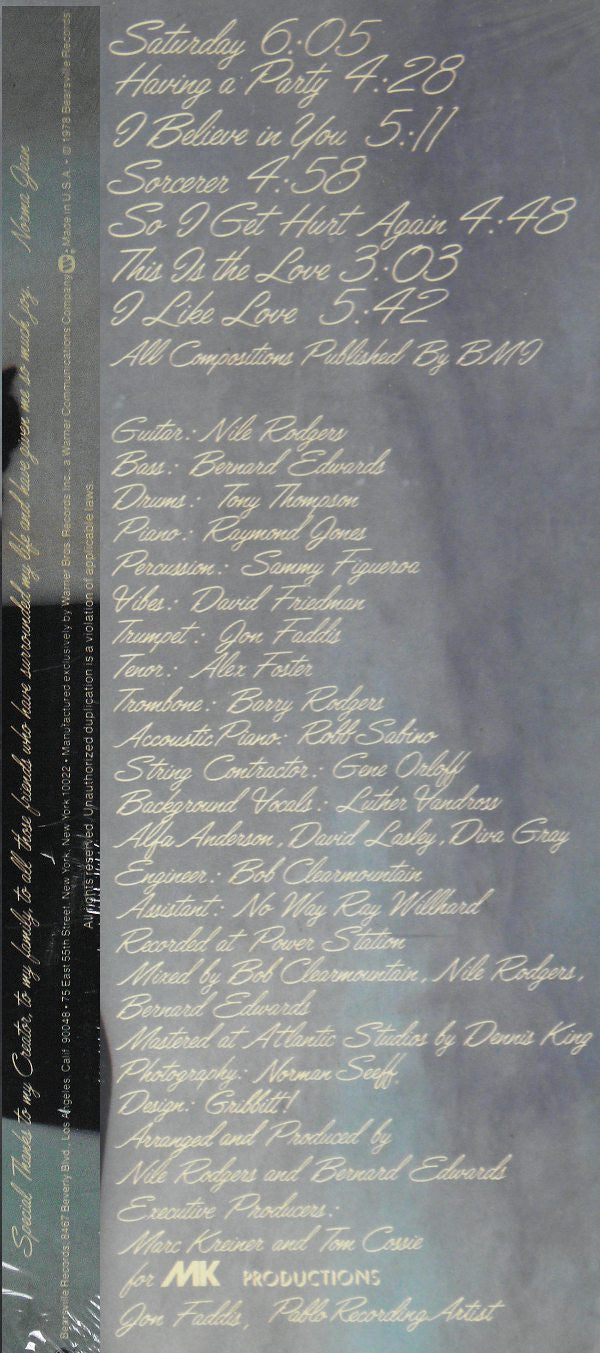 Saturday 6:05
Having a Party 4:28
I Believe in You 5:11
Sorcerer 4:58
So I Get Hurt Again 4:48
This Is the Love 3:03
I Like Love 5:42
All Compositions Published By BMI
Guitar: Nile Rodgers
Bass: Bernard Edwards
Drums: Tony Thompson
Piano: Raymond Jones
Percussion: Sammy Figueroa
Vibes: David Friedman
Trumpet: Jon Faddis
Tenor: Alex Foster
Trombone: Barry Rodgers
Accoustic Piano: Robb Sabino
String Contractor: Gene Orloff
Background Vocals: Luther Vandross
Alfa Anderson, David Lasley, Diva Gray
Engineer: Bob Clearmountain
Assistant: No Way Ray Willhard
Recorded at Power Station
Mixed by Bob Clearmountain, Nile Rodgers,
Bernard Edwards
Mastered at Atlantic Studios by Dennis King
Photography: Norman Seeff,
Design: Gribbitt!
Arranged and Produced by
Nile Rodgers and Bernard Edwards
Executive Producers:
Marc Kreiner and Tom Cossie
for MK PRODUCTIONS
Jon Faddis, Pablo Recording Artist
Special Thanks to my Creator, to my family, to all those friends who have surrounded my life and have given me so much joy. Norma Jean
Bearsville Records: 8467 Beverly Blvd., Los Angeles, Calif. 90048 • 75 East 55th Street, New York, New York 10022 • Manufactured exclusively by Warner Bros. Records Inc., a Warner Communications Company W • Made in U.S.A. • © 1978 Bearsville Records
All rights reserved. Unauthorized duplication is a violation of applicable laws.